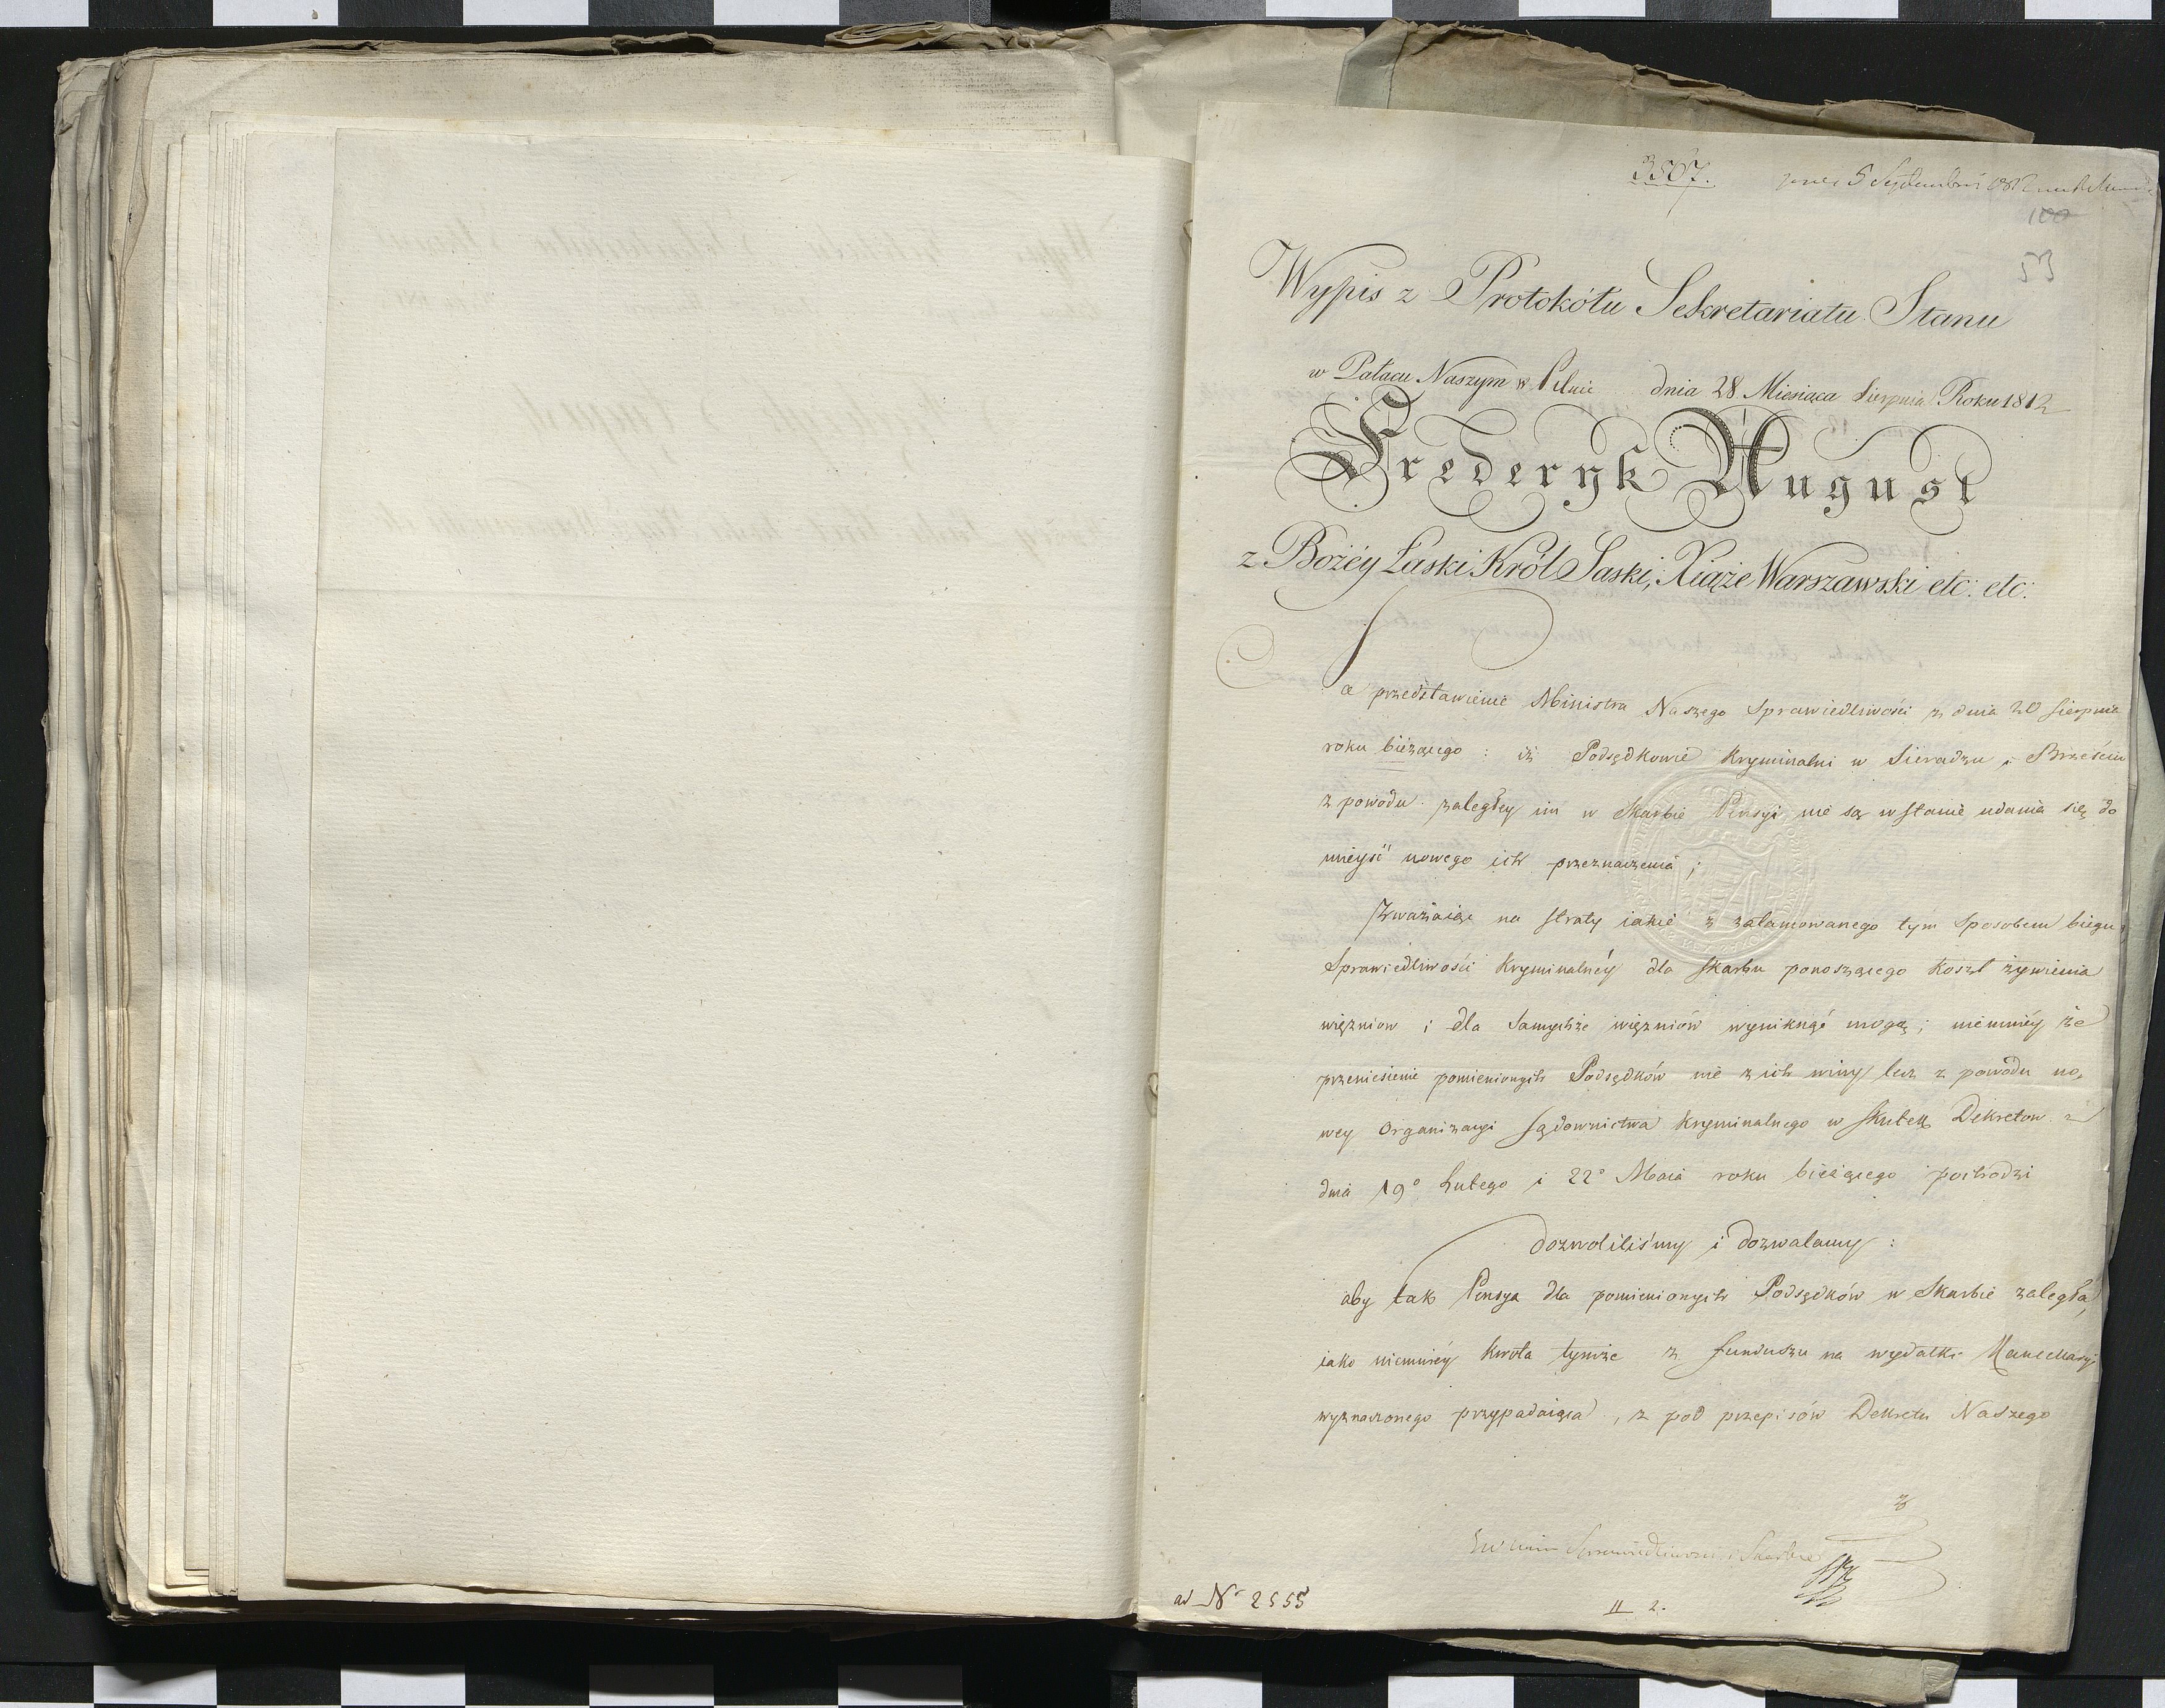 3507.
5 Septembris 1812
100
53
Wypis z Protokółu Sekretariatu Stanu
w Pałacu Naszym w Pilnic dnia 28 Miesiąca Sierpnia Roku 1812
Frederyk August
z Bożéy Łaski Król Saski, Xiąże Warszawski etc: etc:
Na przedstawienie Ministra Naszego Sprawiedliwości z dnia 20 Sierpnia
roku bieżącego : iż Podsędkowie Kryminalni w Sieradzu i Brześciu
z powodu zaległey im w Skarbie Pensyi nie są w stanie udania się do
mieysć nowego ich przeznaczenia ;
Zważaiąc na straty iakie z zatamowanego tym Sposobem biegu
Sprawiedliwości Kryminalnéy dla Skarbu ponoszącego koszt żywienia
więzniow i dla Samychże więzniów wyniknąć mogą ; niemniéy że
przeniesienie pomienionych Podsędków nie z ich winy lecz z powodu no,
wey Organizacyi Sądownictwa Kryminalnego w Skutek Dekretow z
dnia 19° Lutego i 22° Maia roku bieżącego pochodzi
dozwoliliśmy i dozwalamy :
aby tak Pensya dla pomienionych Podsędków w Skarbie zaległa,
iako niemniéy kwota tymże z funduszu na wydatki Kancellaryi
wyznaczonego przypadaiąca , z pod przepisów Dekretu Naszego
z
Sprawiedliwości i Skarbu
ad N° 2555
II 2.